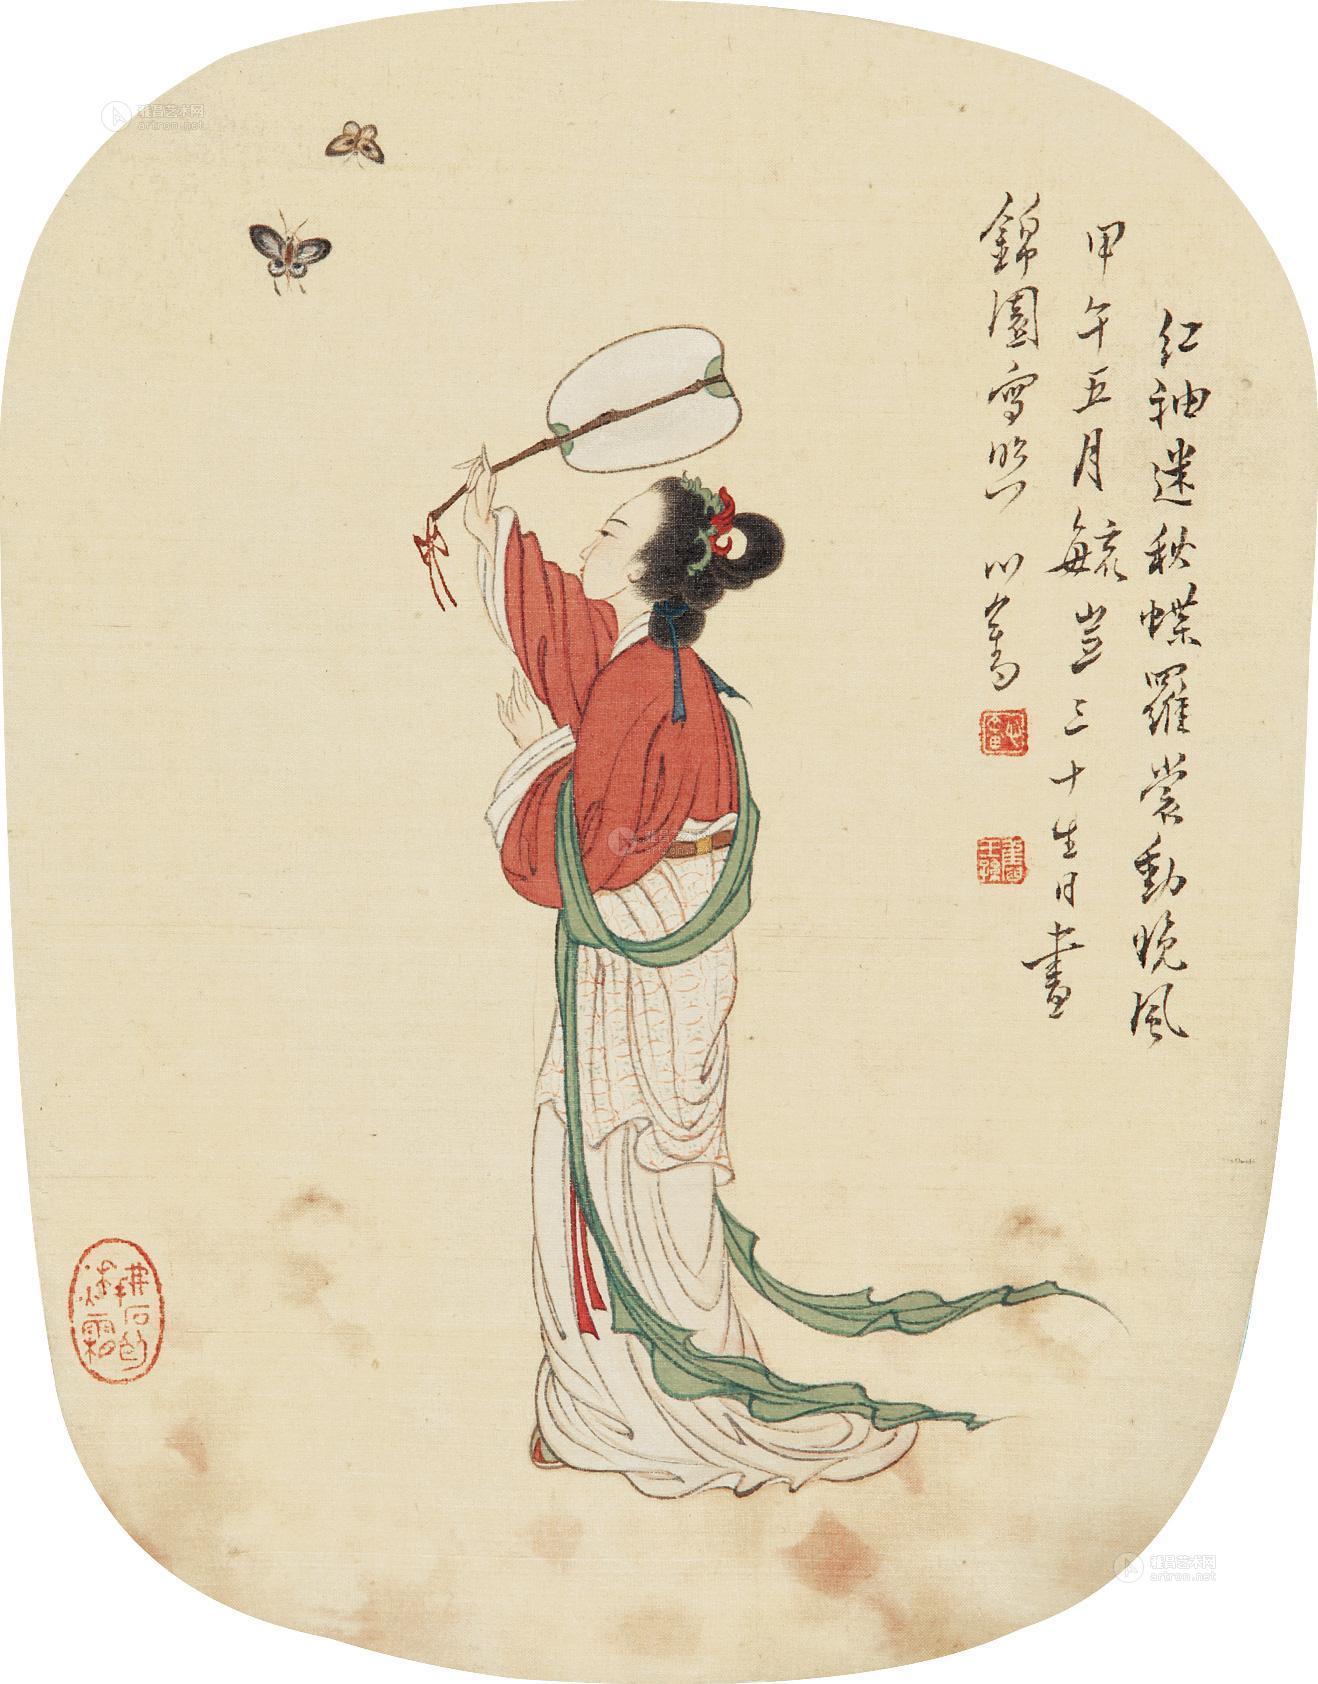 红袖迷秋蝶羅裳動晚風
甲午五月毓豈三十生日畫
錦園寫照 心畬
雅昌艺术网
artron.net
雅昌艺术网
artron.net
雅昌艺术网
artron.net